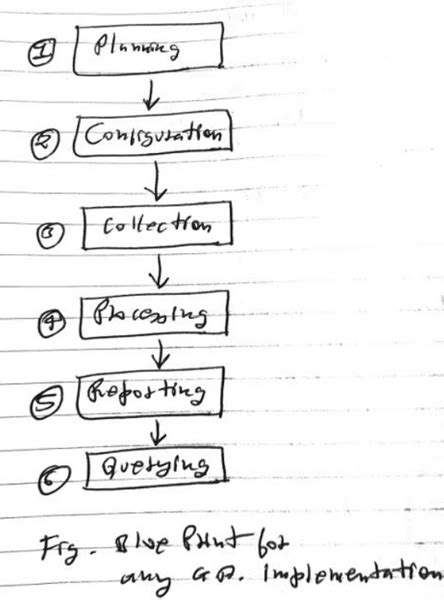 1 Planning
2 Configuration
3 Collection
4 Processing
5 Reporting
6 Querying
Fig. Blue Print for
any G.A. Implementation